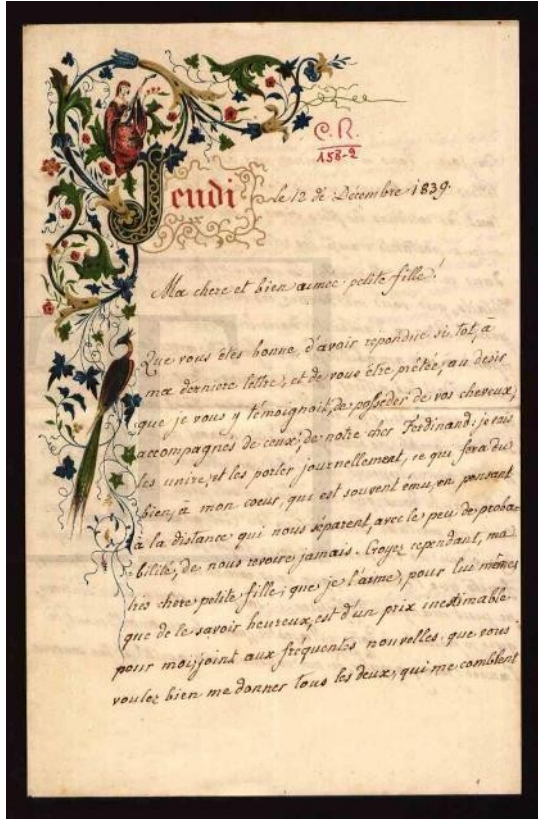 C. R.
158-2
Jeudi le 12 de Décembre 1839.
Ma chere et bien aimee petite fille!
Que vous êtes bonne, d'avoir repondue si tot, à
ma derniere lettre, et de vous être prêtée, au desir
que je vous y témoignoit, de posseder de vos cheveux,
accompagnés de ceux, de notre cher Ferdinand: je vais
les unire, et les porter journellement, ce qui fera du
bien, à mon coeur, qui est souvent ému, en pensant
à la distance qui nous séparent, avec le peu de proba=
bilité, de nous revoire jamais. Croyez cependant, ma
très chere petite fille, que je l'aime, pour lui même,
que de le savoir heureux, est d'un prix inestimable
pour moi, joint aux fréquentes nouvelles que vous
voulez bien me donner tous les deux, qui me comblent